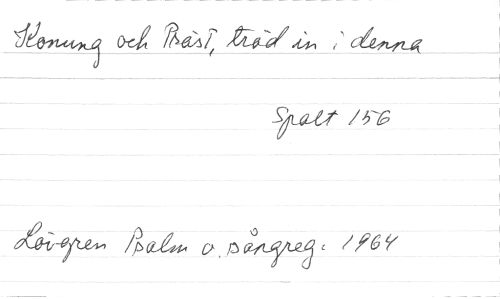 Konung och Präst, träd in i denna
Spalt 156
Lövgren Psalm o. sångreg. 1964